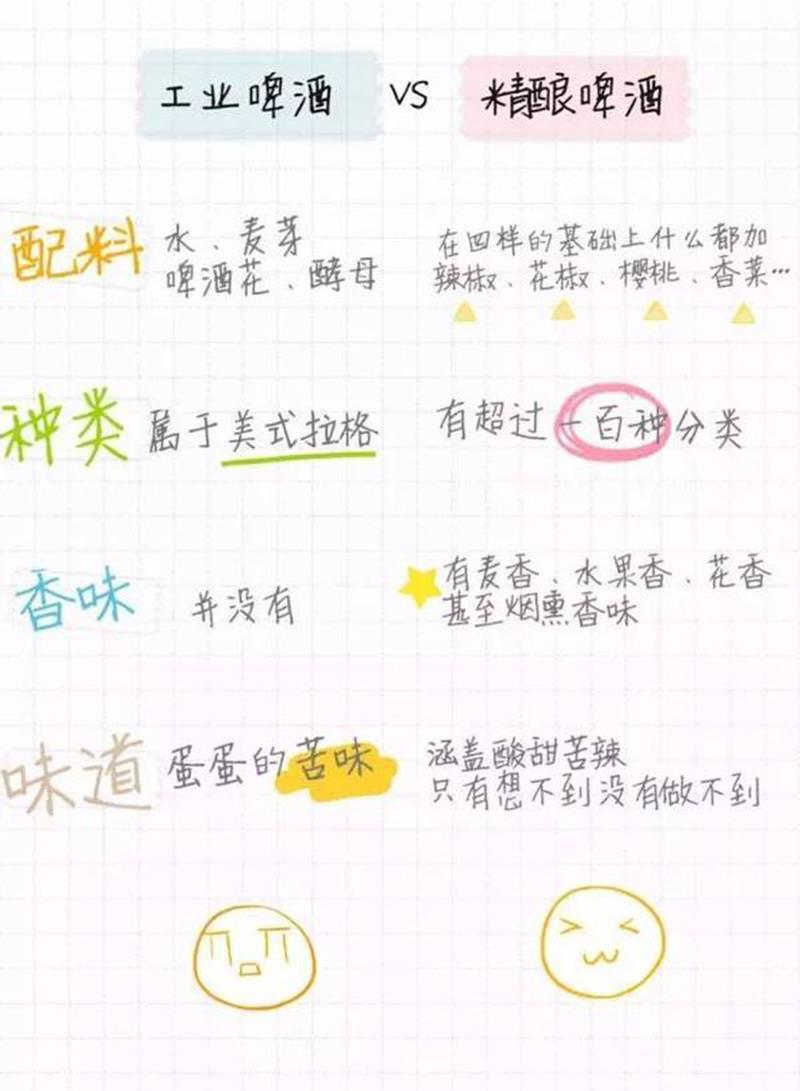 工业啤酒 VS 精酿啤酒
配料
水、麦芽
啤酒花、酵母
在四样的基础上什么都加
辣椒、花椒、樱桃、香菜…
种类
属于美式拉格
有超过一百种分类
香味
并没有
有麦香、水果香、花香
甚至烟熏香味
味道
蛋蛋的苦味
涵盖酸甜苦辣
只有想不到没有做不到